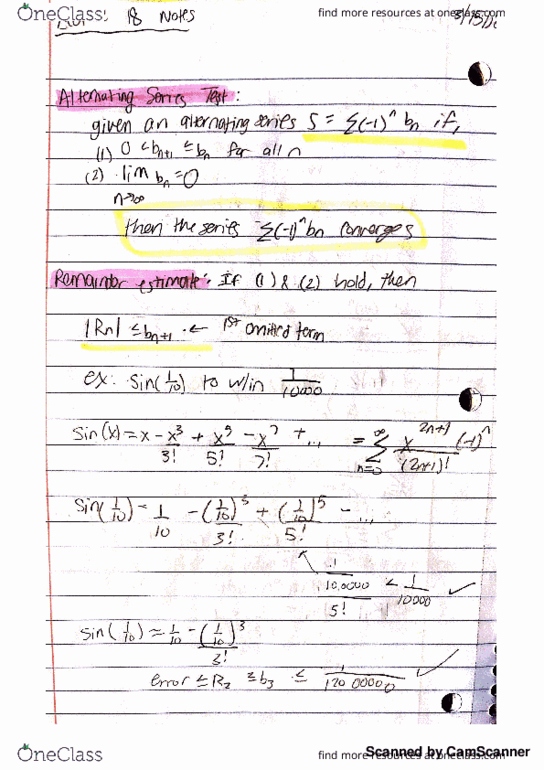 OneClass find more resources at oneclass.com
18 Notes 3/15/
Alternating Series Test:
given an alternating series S = Σ(-1)^n bn if,
(1) 0 < bn+1 ≤ bn for all n
(2) lim bn = 0
n→∞
then the series Σ(-1)^n bn converges
Remainder estimate: If (1) & (2) hold, then
|Rn| ≤ bn+1 ← 1st omitted term
ex: sin(1/10) to w/in 1/10000
sin(x) = x - x^3/3! + x^5/5! - x^7/7! + ... = Σ n=0 ∞ x^2n+1/(2n+1)! (-1)^n
sin(1/10) = 1/10 - (1/10)^3/3! + (1/10)^5/5! - ...
1/100000/5! < 1/10000 ✓
sin(1/10) ≈ 1/10 - (1/10)^3/3!
error ≤ R2 ≤ b3 ≤ 1/12000000 ✓
OneClass find more resources at oneclass.com
Scanned by CamScanner